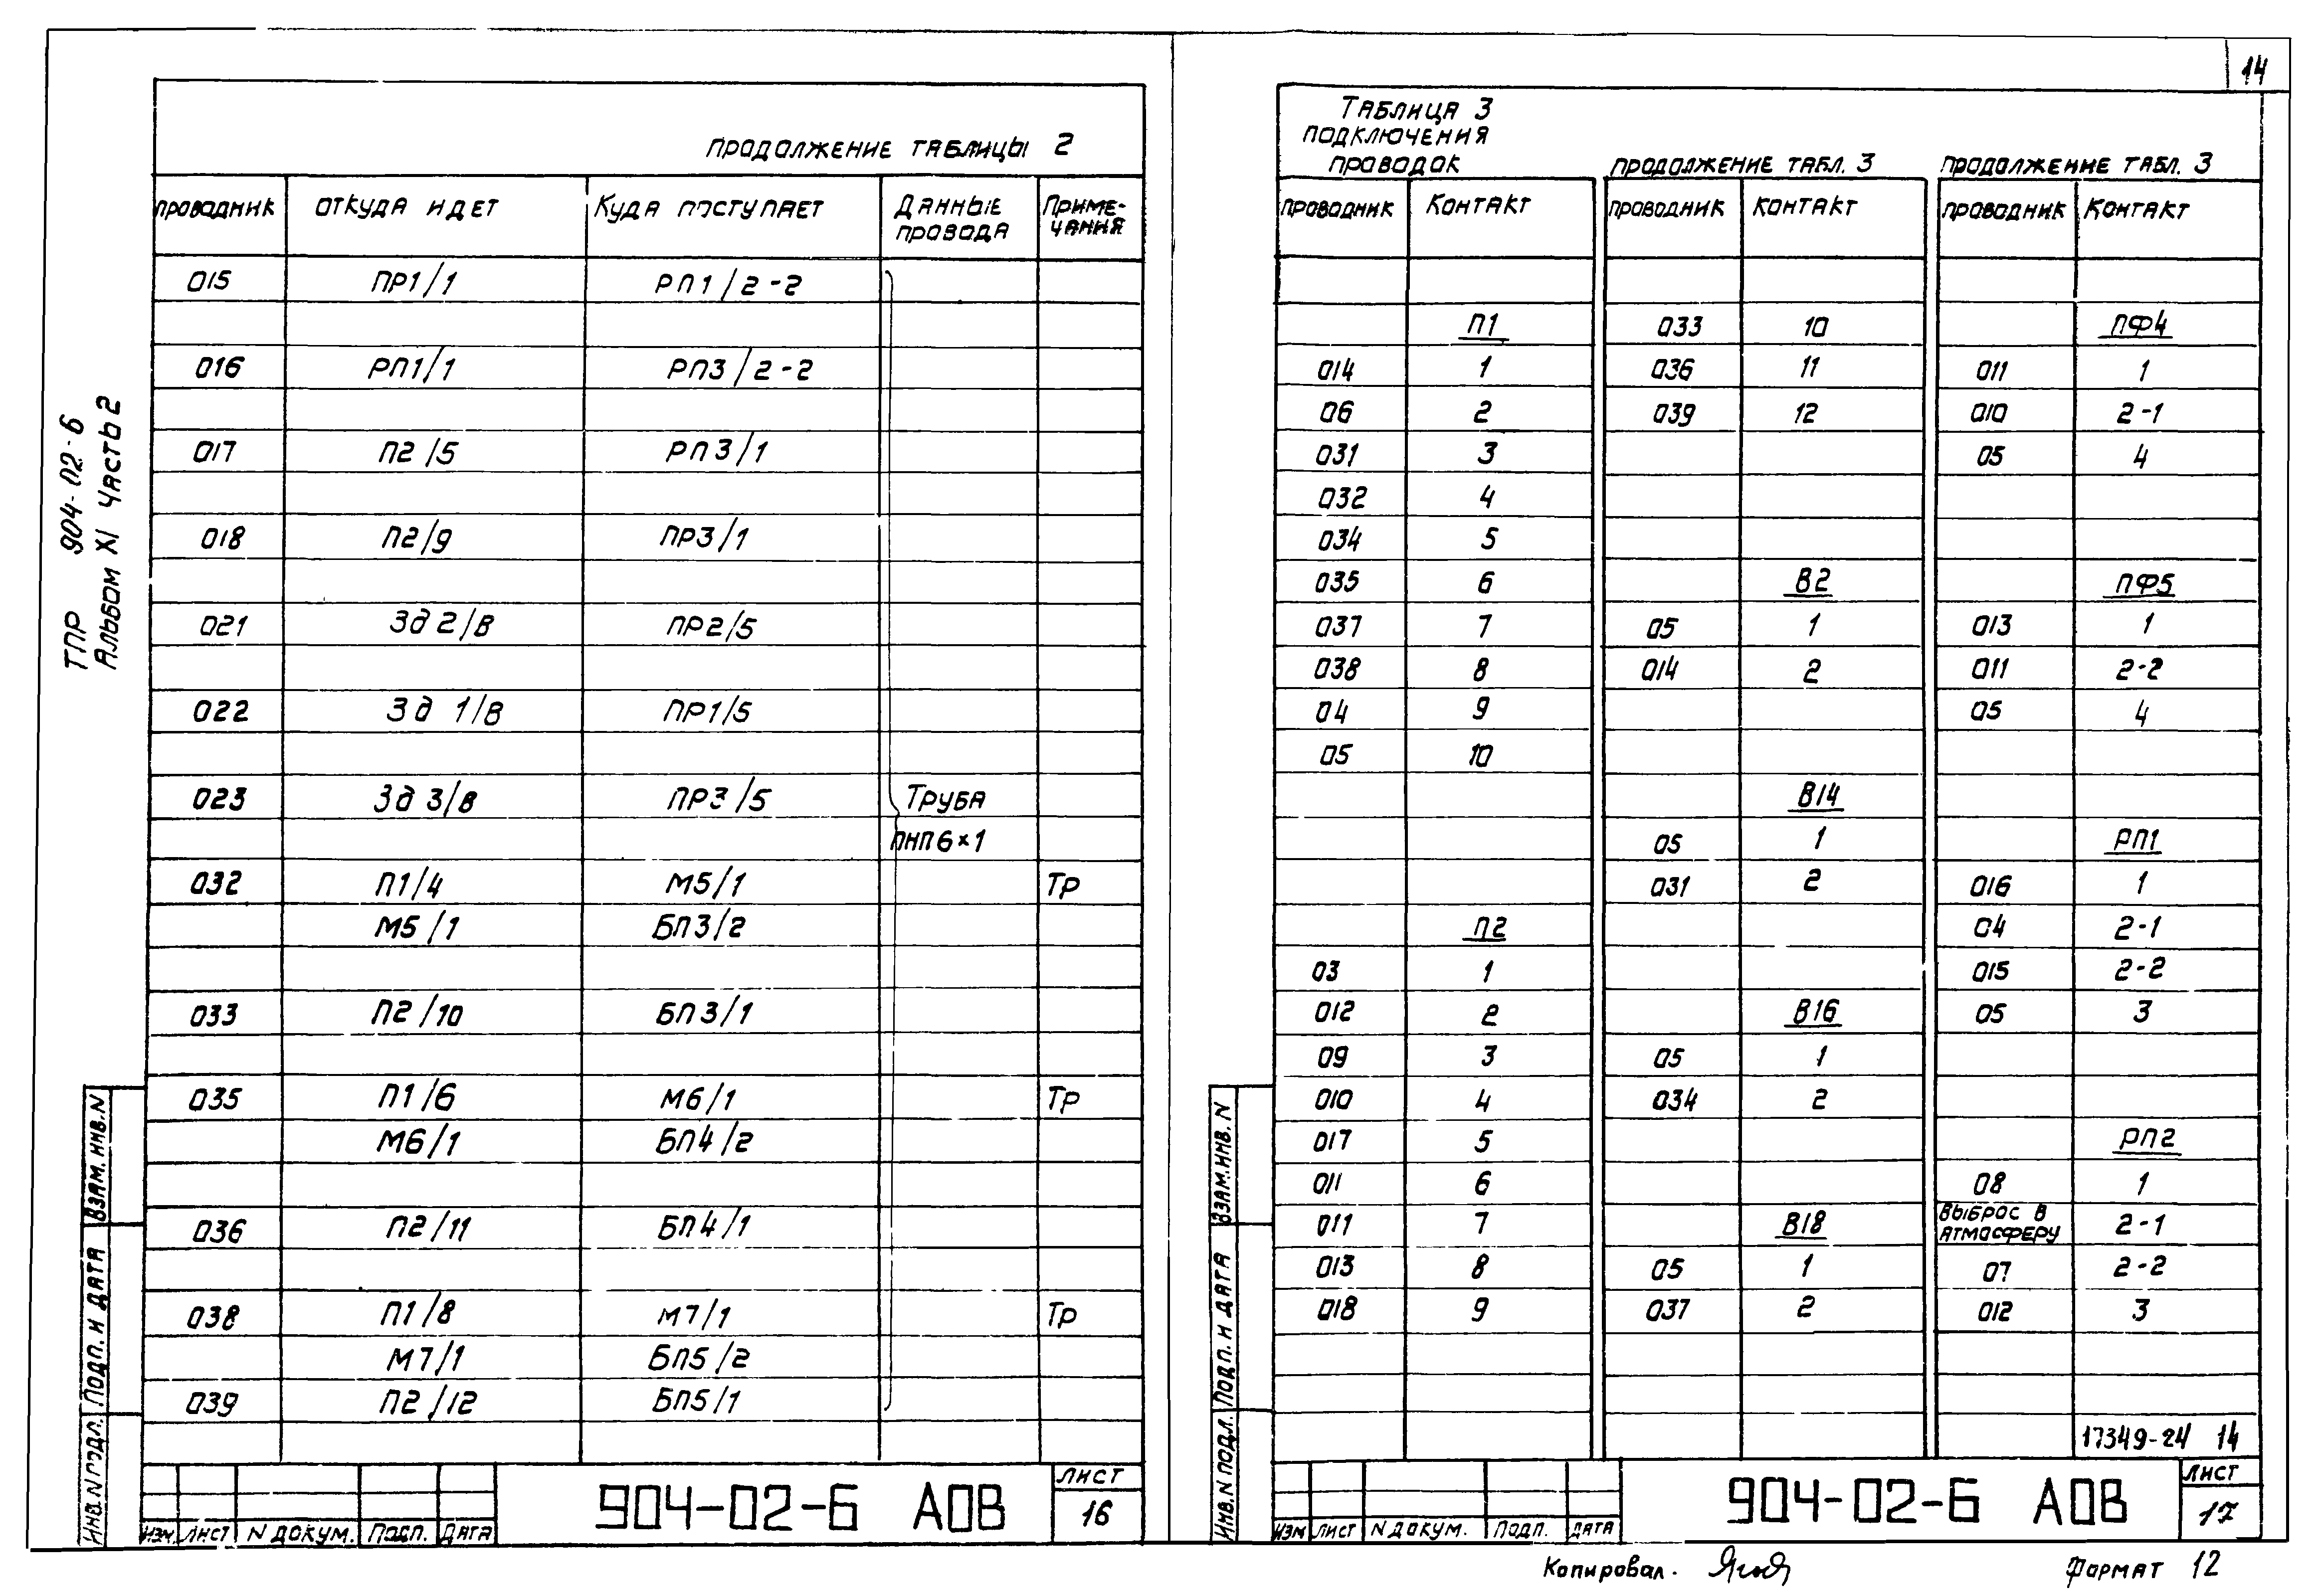 ТПР 904-02-6
Альбом XI Часть 2
Продолжение таблицы 2
Проводник Откуда идет Куда поступает Данные провода Примечания
015 ПР1/1 РП1/2-2
016 РП1/1 РП3/2-2
017 П2/5 РП3/1
018 П2/9 ПР3/1
021 Зд 2/В ПР2/5
022 Зд 1/В ПР1/5
023 Зд 3/В ПР3/5 Труба
ПНП6×1
032 П1/4 М5/1 Тр
М5/1 БП3/2
033 П2/10 БП3/1
035 П1/6 М6/1 Тр
М6/1 БП4/2
036 П2/11 БП4/1
038 П1/8 М7/1 Тр
М7/1 БП5/2
039 П2/12 БП5/1
Взам. инв. N
Подп. и дата
Инв. N подл.
Изм Лист N докум. Подп. Дата
904-02-6 АОВ
Лист
16
14
Таблица 3
подключения
проводок
Проводник Контакт
П1
014 1
06 2
031 3
032 4
034 5
035 6
037 7
038 8
04 9
05 10
П2
03 1
012 2
09 3
010 4
017 5
011 6
011 7
013 8
018 9
Продолжение табл. 3
Проводник Контакт
033 10
036 11
039 12
В2
05 1
014 2
В14
05 1
031 2
В16
05 1
034 2
В18
05 1
037 2
Продолжение табл. 3
Проводник Контакт
ПФ4
011 1
010 2-1
05 4
ПФ5
013 1
011 2-2
05 4
РП1
016 1
04 2-1
015 2-2
05 3
РП2
08 1
Выброс в
атмасферу 2-1
07 2-2
012 3
17349-24 14
Взам. инв. N
Подп. и дата
Инв. N подл.
Изм Лист N докум. Подп. Дата
904-02-6 АОВ
Лист
17
Копировал.
Формат 12